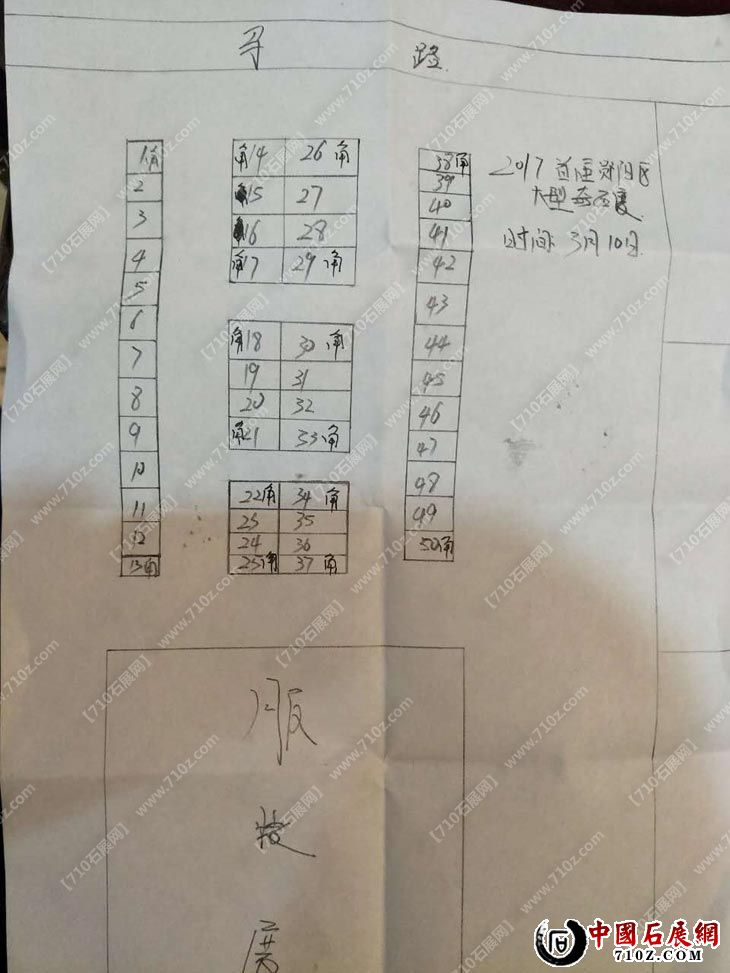 路
1角
2
3
4
5
6
7
8
9
10
11
12
13角
角14 26角
15 27
16 28
角17 29角
角18 30角
19 31
20 32
角21 33角
22角 34角
23 35
24 36
25角 37角
38角
39
40
41
42
43
44
45
46
47
48
49
50角
2017首届
大型奇石展
时间 3月10日
服
装
展
【710石展网】 www.710z.com
中國石展網
710Z.COM